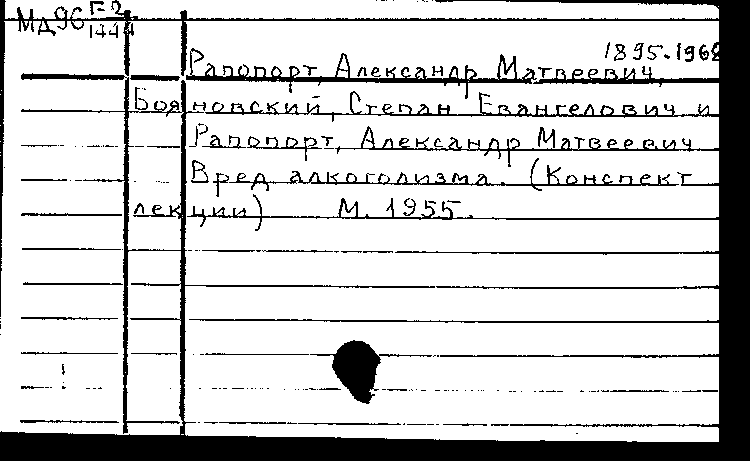 Мд96 Г-2/1444
1895-1968
Рапопорт, Александр Матвеевич,
Бояновский, Степан Евангелович и
Рапопорт, Александр Матвеевич
Вред алкоголизма. (Конспект
лекции) М. 1955.